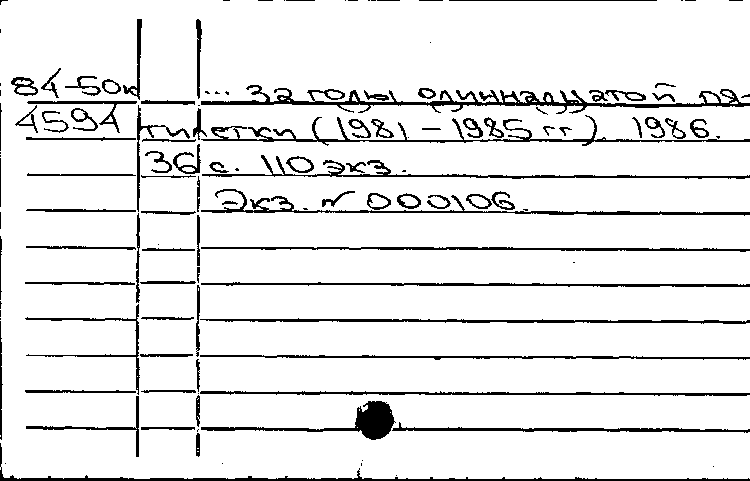 84-50к ... за годы одиннадцатой пя-
4594 тилетки (1981 – 1985 гг). 1986.
36 с. 110 экз.
Экз. № 000106.